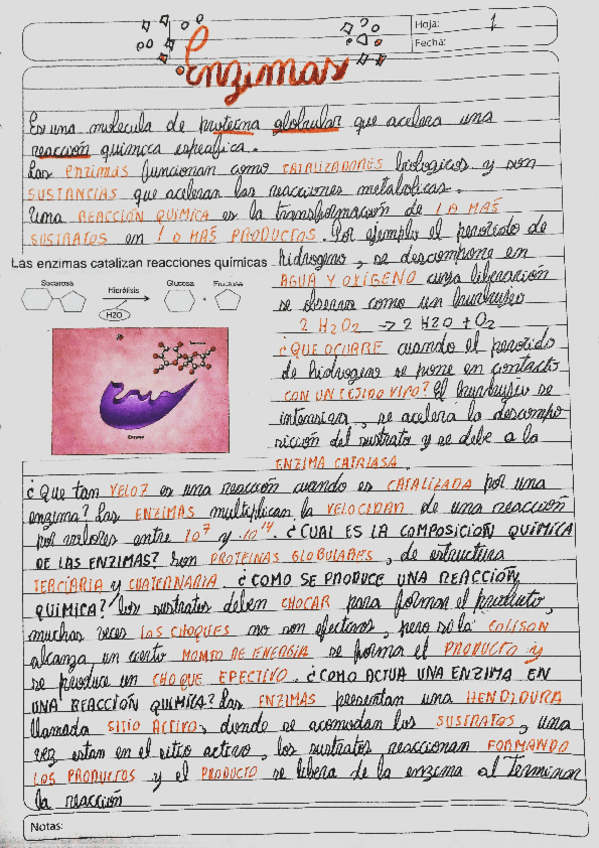 Hoja: 1
Fecha:
Enzimas
Es una molecula de proteina globular que acelera una
reacción quimica especifica.
Las enzimas funcionan como CATALIZADORES biologicos y son
SUSTANCIAS que aceleran las reacciones metabolicas.
Una REACCIÓN QUIMICA es la transformación de 1 O MAS
SUSTRATOS en 1 O MAS PRODUCTOS. Por ejemplo el peroxido de
hidrogeno, se descompone en
AGUA Y OXIGENO cuya liberación
se observa como un burbujeo
2 H2O2 -> 2 H2O + O2
¿QUE OCURRE cuando el peroxido
de hidrogeno se pone en contacto
CON UN TEJIDO VIVO? El burbujeo se
intensifica, se acelera la descompo
sición del sustrato y se debe a la
ENZIMA CATALASA.
Las enzimas catalizan reacciones químicas
Sacarosa
Hidrólisis
Glucosa
Fructosa
H2O
Enzyme
¿Que tan VELOZ es una reacción cuando es CATALIZADA por una
enzima? Las ENZIMAS multiplican la VELOCIDAD de una reacción
por valores entre 10^7 y 10^14. ¿CUAL ES LA COMPOSICIÓN QUÍMICA
DE LAS ENZIMAS? Son PROTEINAS GLOBULARES, de estructura
TERCIARIA y CUATERNARIA. ¿COMO SE PRODUCE UNA REACCIÓN
QUÍMICA? Los sustratos deben CHOCAR para formar el producto,
muchas veces LOS CHOQUES no son efectivos, pero si la COLISON
alcanza un cierto MONTO DE ENERGIA se forma el PRODUCTO y
se produce un CHOQUE EFECTIVO. ¿COMO ACTUA UNA ENZIMA EN
UNA REACCIÓN QUIMICA? Las ENZIMAS presentan una HENDIDURA
llamada SITIO ACTIVO, donde se acomodan los SUSTRATOS, una
vez estan en el sitio activo, los sustratos reaccionan FORMANDO
LOS PRODUCTOS y el PRODUCTO se libera de la enzima al terminar
la reacción
Notas: